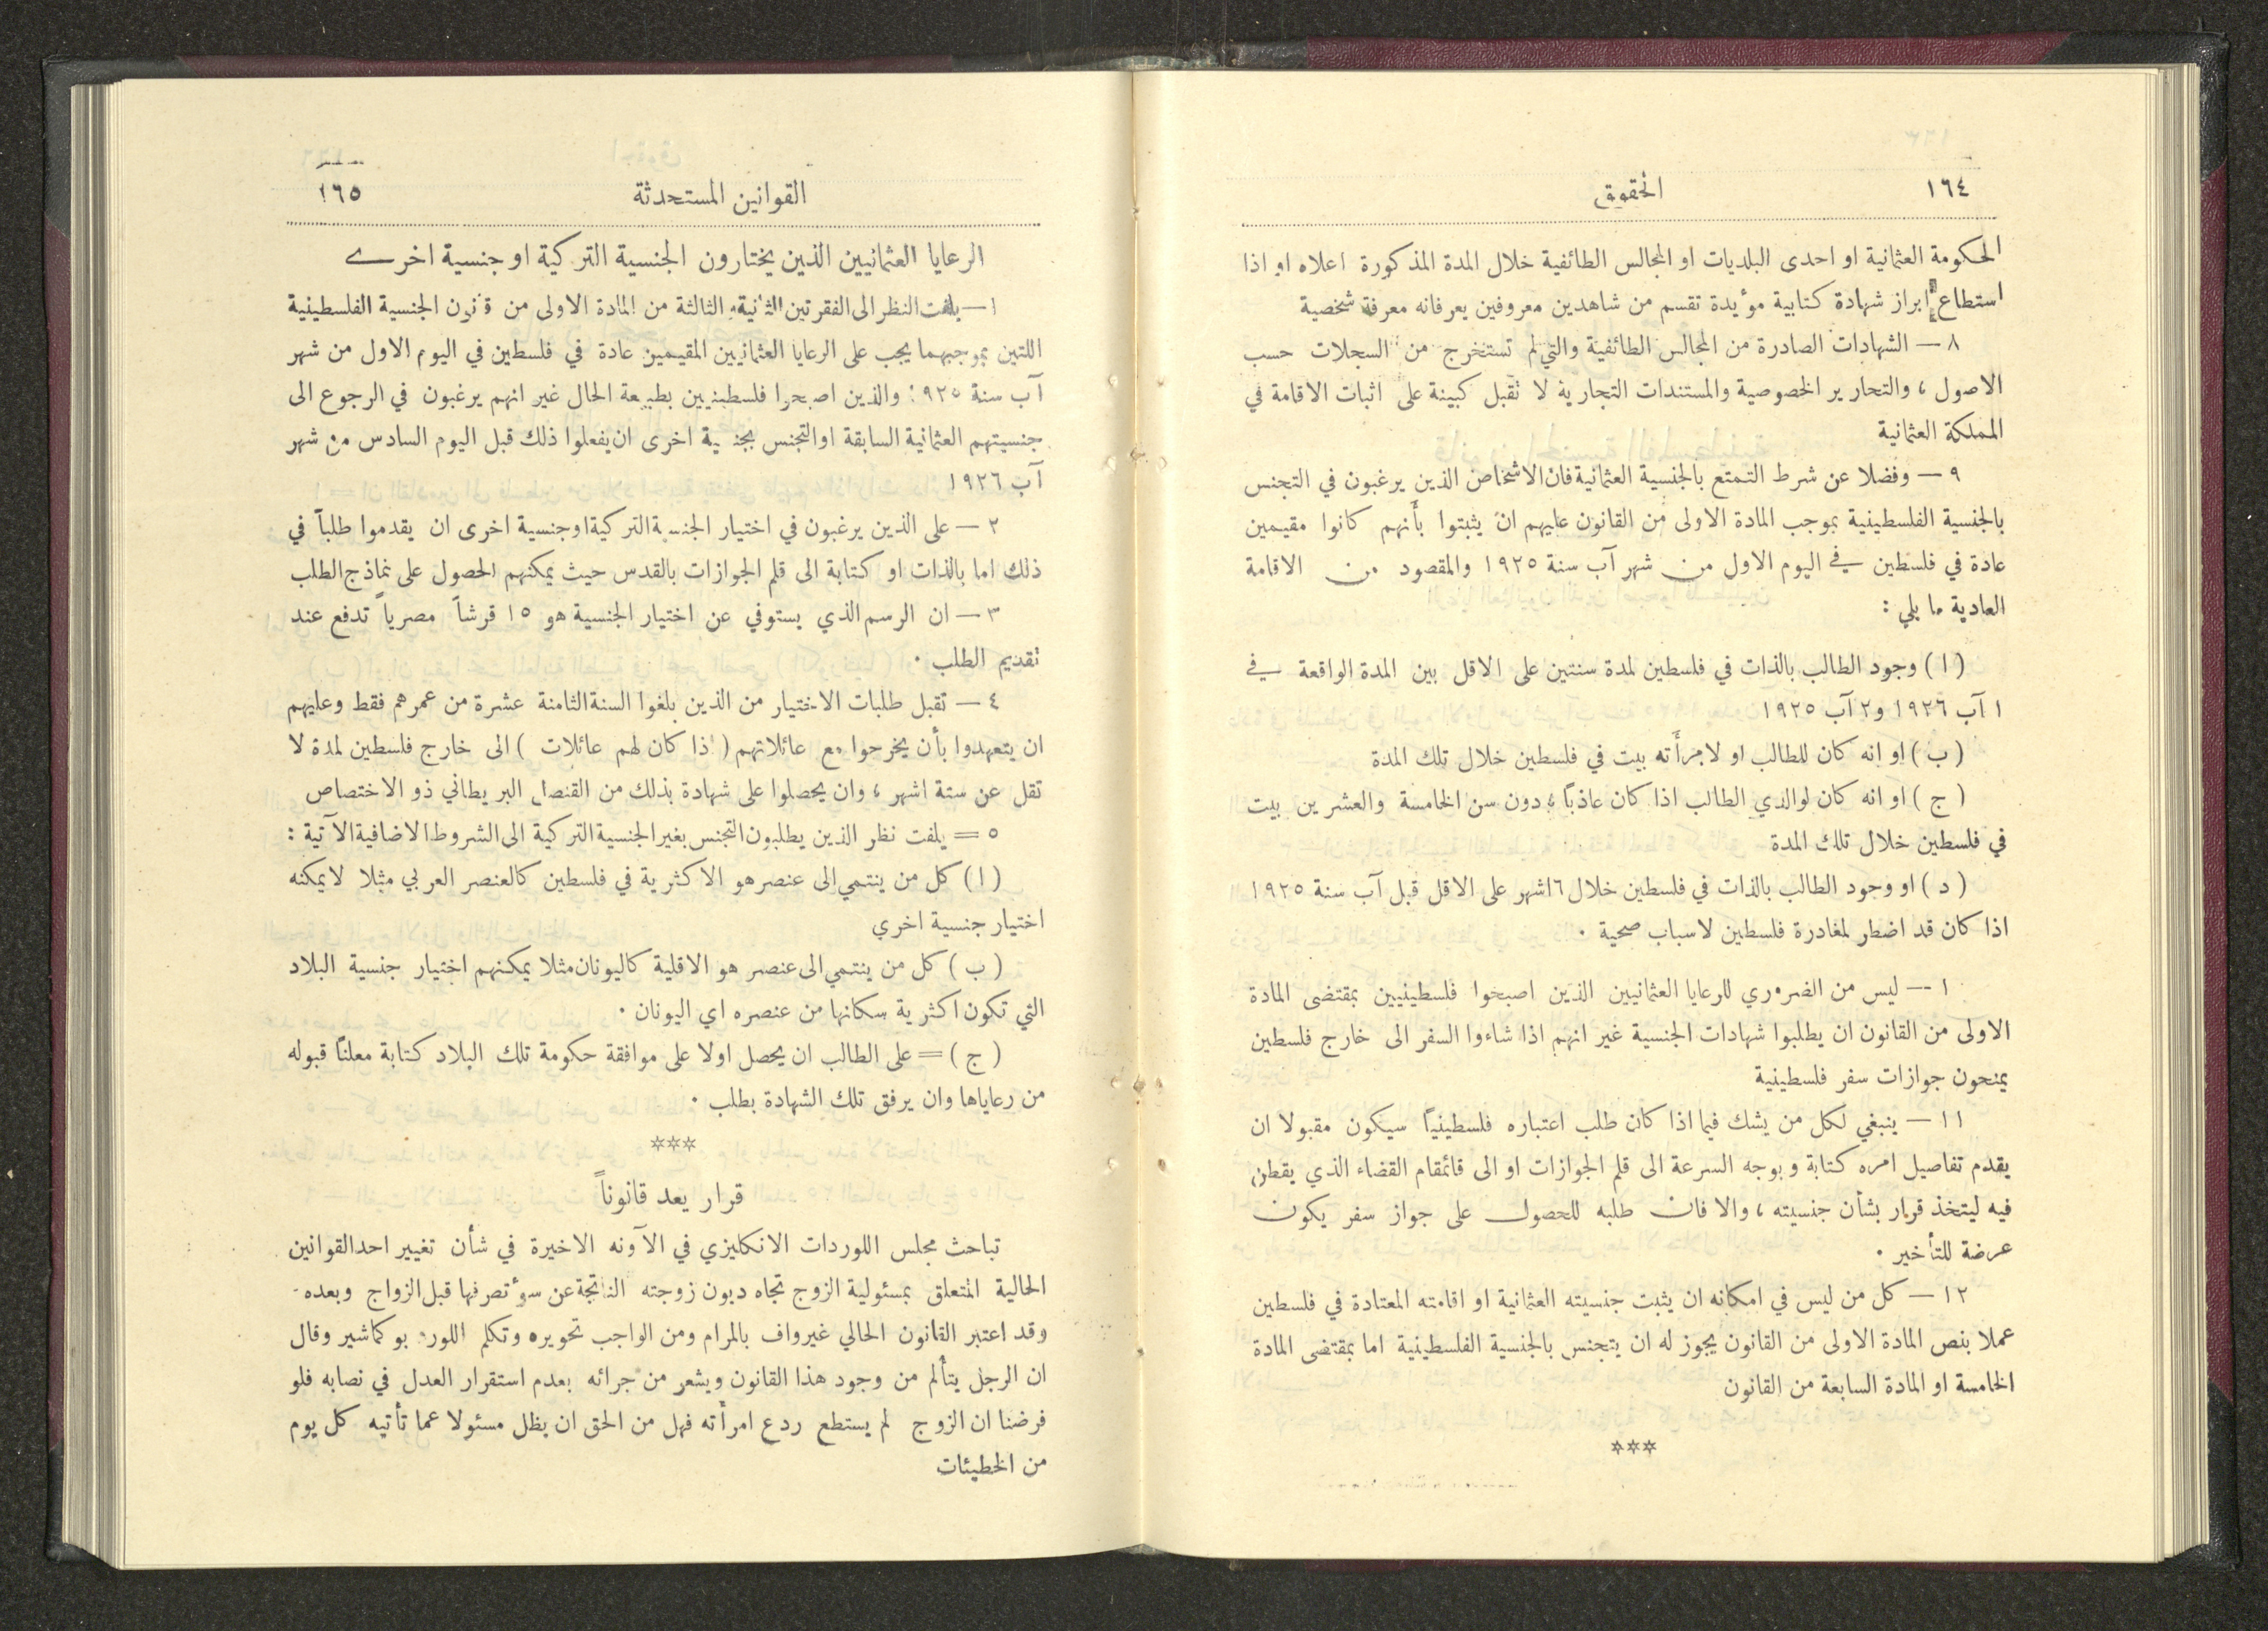 ١٦٤
الحقوق
الحكومة العثمانية او احدى البلديات او المجالس الطائفية خلال المدة المذكورة اعلاه او اذا
استطاع ابراز شهادة كتابية مؤيدة تقسم من شاهدين معروفين يعرفانه معرفة شخصية
٨ — الشهادات الصادرة من المجالس الطائفية والتي لم تستخرج من السجلات حسب
الاصول ، والتحارير الخصوصية والمستندات التجارية لا تقبل كبينة على اثبات الاقامة في
المملكة العثمانية
٩ — وفضلا عن شرط التمتع بالجنسية العثمانية فان الاشخاص الذين يرغبون في التجنس
بالجنسية الفلسطينية بموجب المادة الاولى من القانون عليهم ان يثبتوا بأنهم كانوا مقيمين
عادة في فلسطين في اليوم الاول من شهر آب سنة ١٩٢٥ والمقصود من الاقامة
العادية ما يلي :
( ا ) وجود الطالب بالذات في فلسطين لمدة سنتين على الاقل بين المدة الواقعة في
١ آب ١٩٢٦ و٢ آب ١٩٢٥
( ب ) او انه كان للطالب او لامرأته بيت في فلسطين خلال تلك المدة
( ج ) او انه كان لوالدي الطالب اذا كان عاذباً ودون سن الخامسة والعشرين بيت
في فلسطين خلال تلك المدة
( د ) او وجود الطالب بالذات في فلسطين خلال ٦ اشهر على الاقل قبل آب سنة ١٩٢٥
اذا كان قد اضطر لمغادرة فلسطين لاسباب صحية .
١ — ليس من الضروري للرعايا العثمانيين الذين اصبحوا فلسطينيين بمقتضى المادة
الاولى من القانون ان يطلبوا شهادات الجنسية غير انهم اذا شاءوا السفر الى خارج فلسطين
يمنحون جوازات سفر فلسطينية
١١ — ينبغي لكل من يشك فيما اذا كان طلب اعتباره فلسطينياً سيكون مقبولا ان
يقدم تفاصيل امره كتابة وبوجه السرعة الى قلم الجوازات او الى قائمقام القضاء الذي يقطن
فيه ليتخذ قرار بشأن جنسيته ، والا فان طلبه للحصول على جواز سفر يكون
عرضة للتأخير .
١٢ — كل من ليس في امكانه ان يثبت جنسيته العثمانية او اقامته المعتادة في فلسطين
عملا بنص المادة الاولى من القانون يجوز له ان يتجنس بالجنسية الفلسطينية اما بمقتضى المادة
الخامسة او المادة السابعة من القانون
***
القوانين المستحدثة
١٦٥
الرعايا العثمانيين الذين يختارون الجنسية التركية او جنسية اخرى
١ — يلفت النظر الى الفقرتين الثانية والثالثة من المادة الاولى من قانون الجنسية الفلسطينية
اللتين بموجبهما يجب على الرعايا العثمانيين المقيمين عادة في فلسطين في اليوم الاول من شهر
آب سنة ٩٢٥ والذين اصبحوا فلسطينيين بطبيعة الحال غير انهم يرغبون في الرجوع الى
جنسيتهم العثمانية السابقة او التجنس بجنسية اخرى ان يفعلوا ذلك قبل اليوم السادس من شهر
آب ١٩٢٦
٢ — على الذين يرغبون في اختيار الجنسية التركية او جنسية اخرى ان يقدموا طلباً في
ذلك اما بالذات او كتابة الى قلم الجوازات بالقدس حيث يمكنهم الحصول على نماذج الطلب
٣ — ان الرسم الذي يستوفي عن اختيار الجنسية هو ١٥ قرشاً مصرياً تدفع عند
تقديم الطلب .
٤ — تقبل طلبات الاختيار من الذين بلغوا السنة الثامنة عشرة من عمرهم فقط وعليهم
ان يتعهدوا بأن يخرجوا مع عائلاتهم ( اذا كان لهم عائلات ) الى خارج فلسطين لمدة لا
تقل عن ستة اشهر ، وان يحصلوا على شهادة بذلك من القنصل البريطاني ذو الاختصاص
٥ = يلفت نظر الذين يطلبون التجنس بغير الجنسية التركية الى الشروط الاضافية الآتية :
( ا ) كل من ينتمي الى عنصر هو الاكثرية في فلسطين كالعنصر العربي مثلا لا يمكنه
اختيار جنسية اخري
( ب ) كل من ينتمي الى عنصر هو الاقلية كاليونان مثلا يمكنهم اختيار جنسية البلاد
التي تكون اكثرية سكانها من عنصره اي اليونان .
( ج ) = على الطالب ان يحصل اولا على موافقة حكومة تلك البلاد كتابة معلناً قبوله
من رعاياها وان يرفق تلك الشهادة بطلب .
***
قرار يعد قانوناً
تباحث مجلس اللوردات الانكليزي في الآونه الاخيرة في شأن تغيير احد القوانين
الحالية المتعلق بمسئولية الزوج تجاه ديون زوجته الناتجة عن سؤ تصرفها قبل الزواج وبعده
وقد اعتبر القانون الحالي غير واف بالمرام ومن الواجب تحويره وتكلم اللورد بوكماشير وقال
ان الرجل يتألم من وجود هذا القانون ويشعر من جرائه بعدم استقرار العدل في نصابه فلو
فرضنا ان الزوج لم يستطع ردع امرأته فهل من الحق ان يظل مسئولا عما تأتيه كل يوم
من الخطيئات